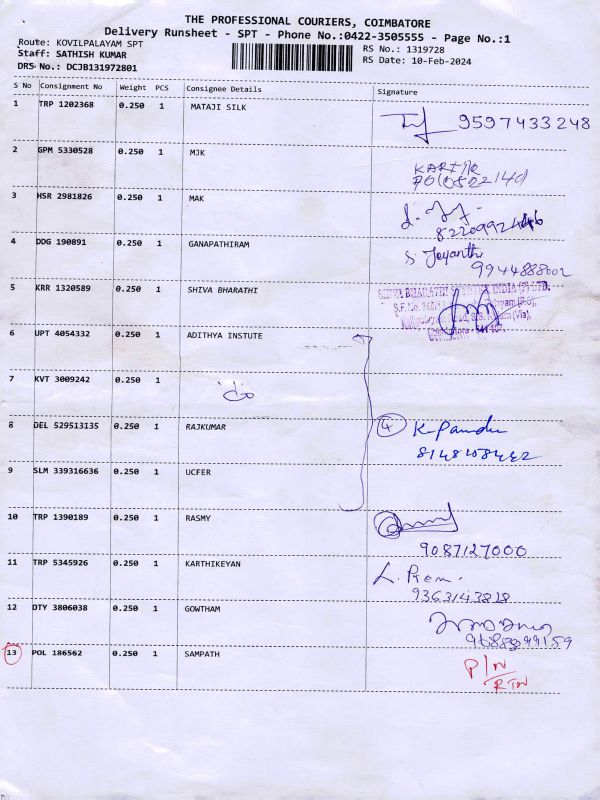 THE PROFESSIONAL COURIERS, COIMBATORE
Delivery Runsheet - SPT - Phone No.:0422-3505555 - Page No.:1
Route: KOVILPALAYAM SPT
RS No.: 1319728
Staff: SATHISH KUMAR
RS Date: 10-Feb-2024
DRS No.: DCJB131972801
S No Consignment No Weight PCS Consignee Details Signature
1 TRP 1202368 0.250 1 MATAJI SILK
9597433248
2 GPM 5330528 0.250 1 MJK
3 HSR 2981826 0.250 1 MAK
4 DDG 190891 0.250 1 GANAPATHIRAM
S. Jayanthi
9944888002
5 KRR 1320589 0.250 1 SHIVA BHARATHI
6 UPT 4054332 0.250 1 ADITHYA INSTUTE
7 KVT 3009242 0.250 1
do
8 DEL 529513135 0.250 1 RAJKUMAR
4
9 SLM 339316636 0.250 1 UCFER
10 TRP 1390189 0.250 1 RASMY
9087127000
11 TRP 5345926 0.250 1 KARTHIKEYAN
L. Prem.
9363143828
12 DTY 3806038 0.250 1 GOWTHAM
13 POL 186562 0.250 1 SAMPATH
P/N
RTN